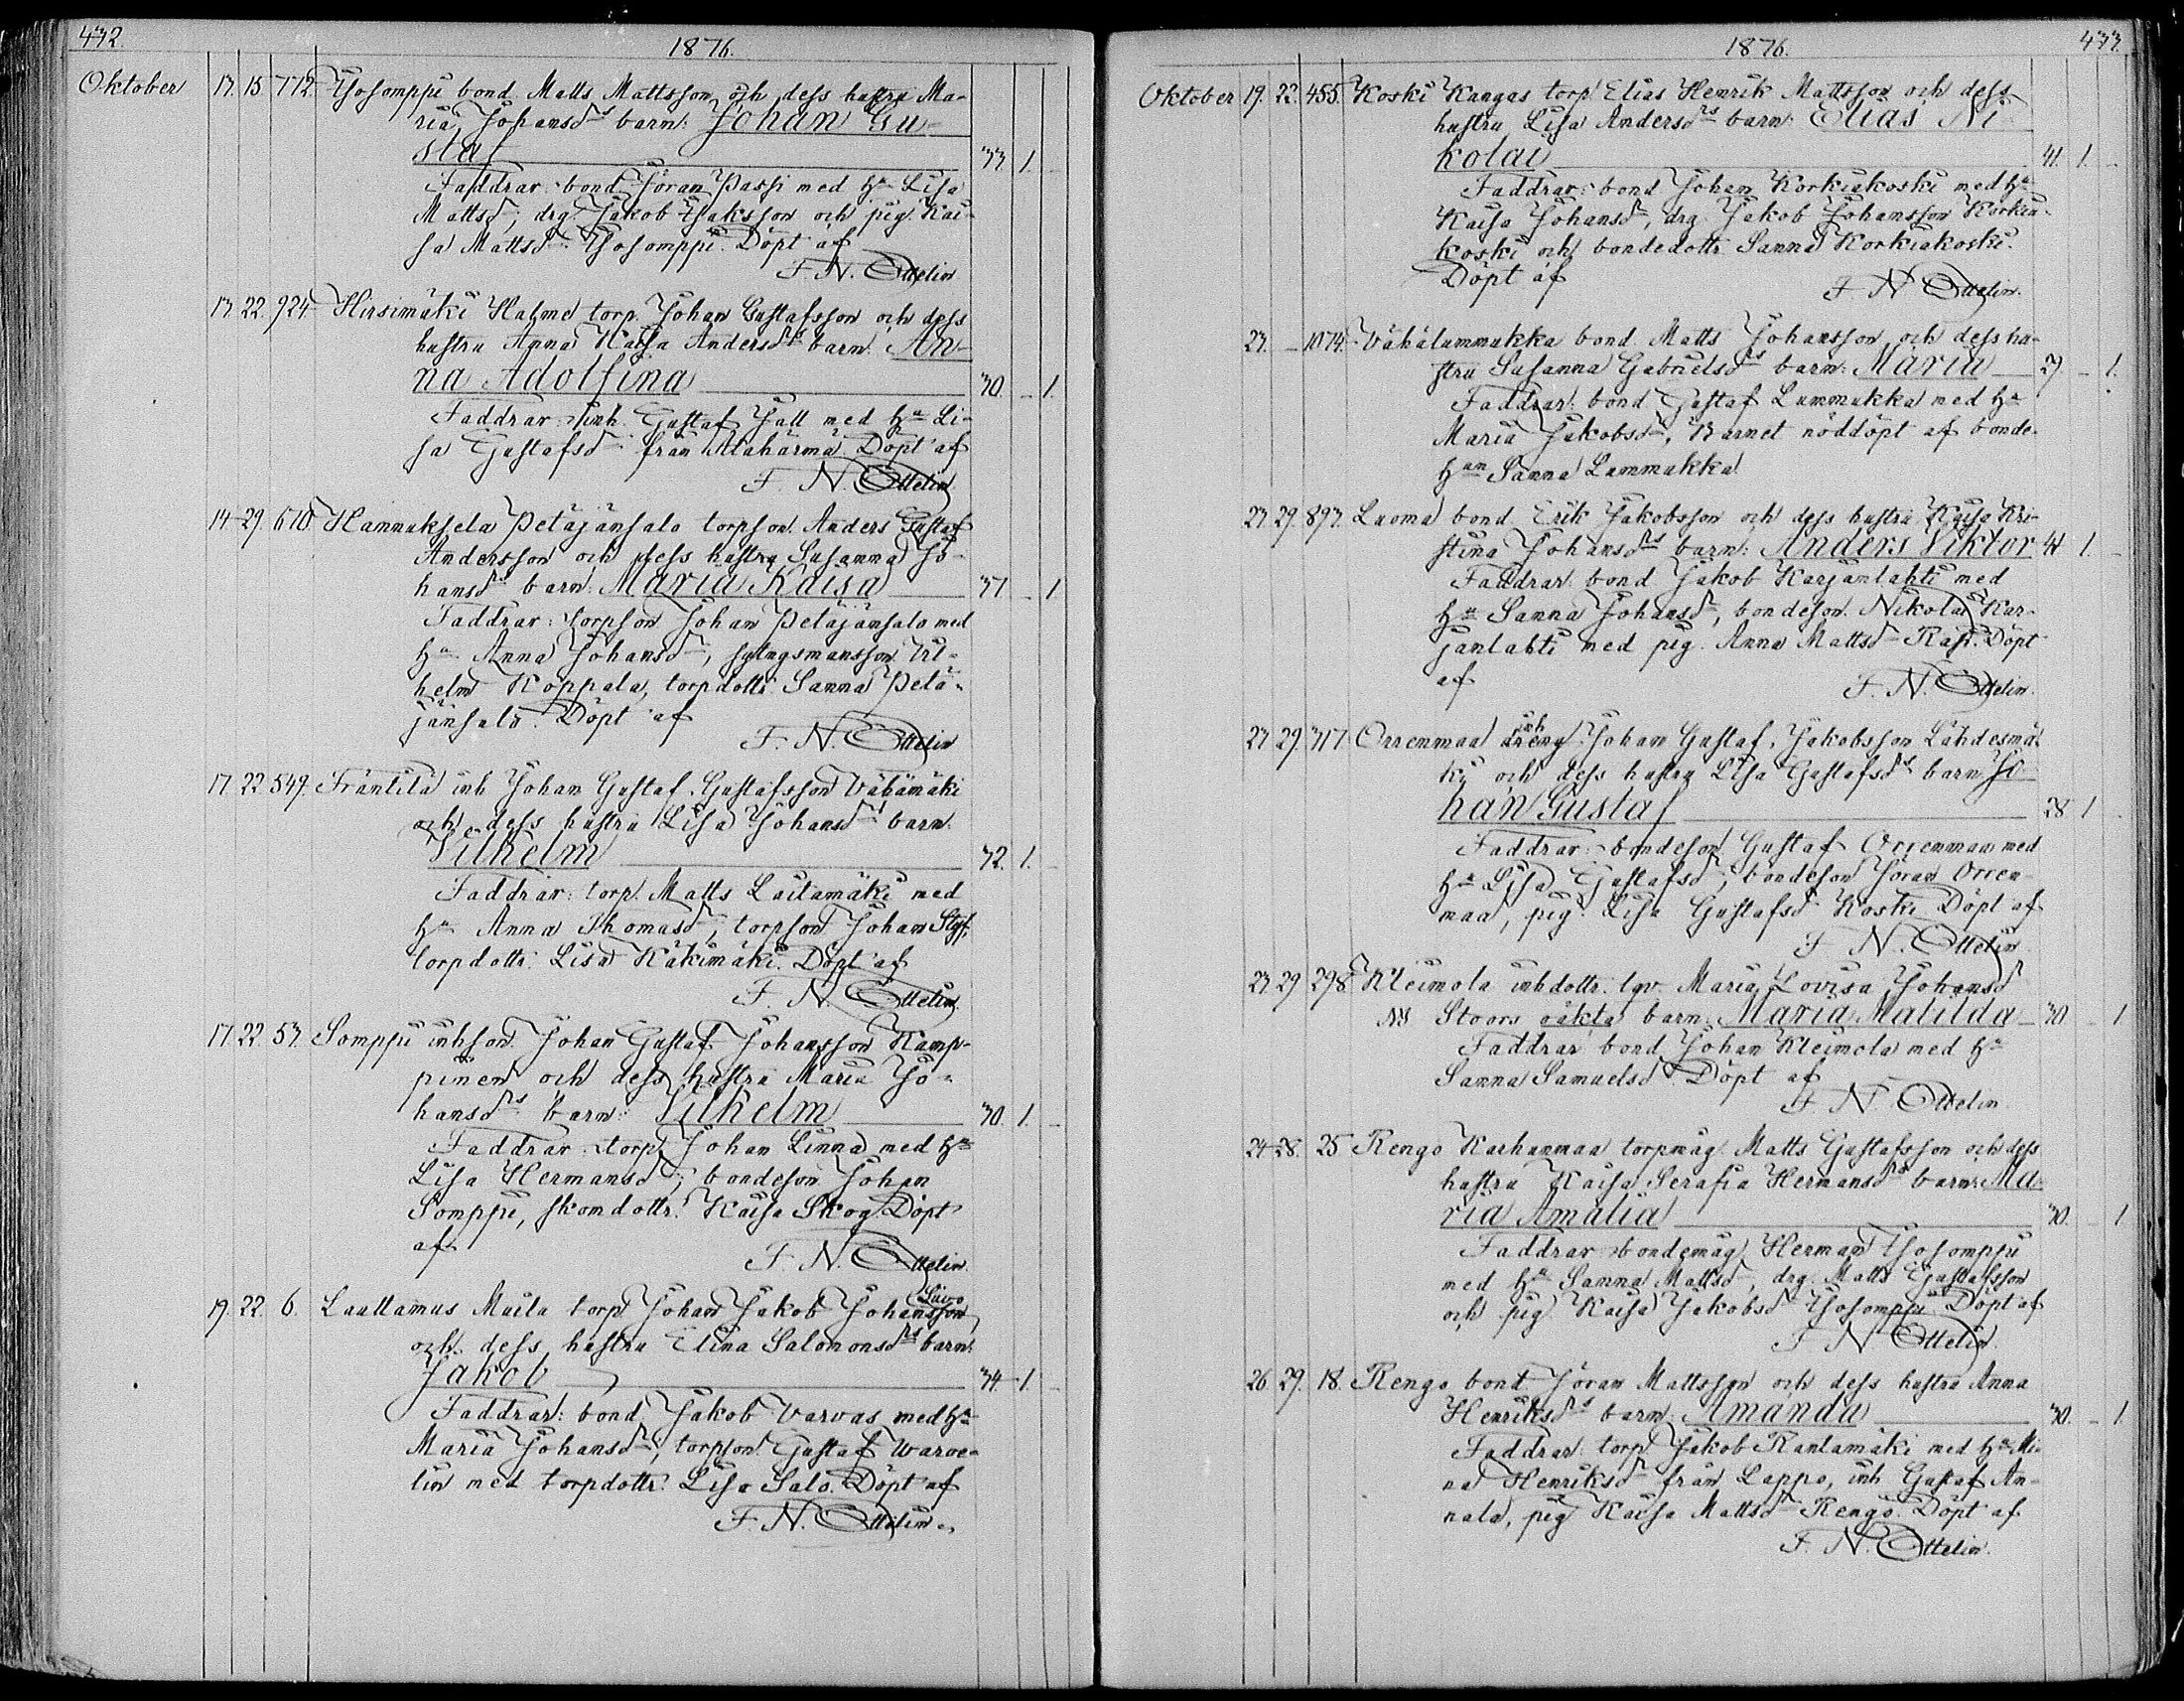 432.
1876.
Oktober 13. 15. 772. Yosomppi bond. Matts Mattsson och dess hustru Ma-
ria Johansdrs barn: Johan Gu-
staf 33. 1. -
Faddrar: bond. Jöran Passi med hu Lisa
Mattsdr, drg. Jakob Isaksson och pig. Kai-
sa Mattsdr Yosomppi. Döpt af
F. N. Ottelin
13. 22. 924. Hirsimäki Halme torp. Johan Gustafsson och dess
hustru Anna Kaisa Andersdrs barn: An-
na Adolfina 30. - 1.
Faddrar: inh. Gustaf Jåll med hu Li-
sa Gustafsdr från Alahärmä. Döpt af
F. N. Ottelin
14. 29. 610. Hannuksela Petäjänsalo torpson. Anders Gustaf
Andersson och dess hustru Susanna Jo-
hansdrs barn: Maria Kaisa 31. - 1
Faddrar: torpson Johan Petäjänsalo med
hu Anna Johansdr, sytngsmansson Vil-
helm Koppala, torpdottr. Sanna Petä-
jänsalo. Döpt af
F. N. Ottelin
17. 22. 549. Fräntilä inh Johan Gustaf Gustafsson Vähämäki
och dess hustru Lisa Johansdrs barn:
Vilhelm 32. 1. -
Faddrar: torp. Matts Lautamäki med
hu Anna Thomasdr, torpson Johan
torpdottr. Lisa Käkimäki. Döpt af
F. N. Ottelin
17. 22. 53. Somppi inhson. Johan Gustaf Johansson Kamp-
pinen och dess hustru Maria Jo-
hansdrs barn: Vilhelm 30. 1. -
Faddrar: torp. Johan Linna med hu
Lisa Hermansdr; bondeson Johan
Somppi, skomdottr. Kaisa Skog. Döpt
af
F. N. Ottelin
19. 22. 6. Luattamus Maila torp. Johan Jakob Johansson
och dess hustru Elina Salomonsdrs barn:
Jakob 34. 1. -
Faddrar: bond Jakob Varvas med hu
Maria Johansdr; torpson Gustaf Warve-
lin med torpdottr. Lisa Salo. Döpt af
F. N. Ottelin
1876.
433.
Oktober 19. 22. 455. Koski Kangas torp. Elias Henrik Mattsson och dess
hustru Lisa Andersdrs barn: Elias Ni-
kolai 41. 1. -
Faddrar: bond Johan Korkiakoski med hu
Kaisa Johansdr, drg. Jakob Johansson Korkia-
koski och bondedottr. Sanna Korkiakoski.
Döpt af
F. N. Ottelin.
23. - 1074. Vähälummukka bond. Matts Johansson och dess hu-
stru Susanna Gabrielsdrs barn: Maria 29. - 1.
Faddrar: bond Gustaf Lummukka med hu
Maria Jakobsdr, Barnet nöddöpt af bonde-
hun Sanna Lummukka
23. 29. 893. Luoma bond. Erik Jakobsson och dess hustru Kaisa Kri-
stina Johansdrs barn: Anders Viktor 41 1. -
Faddrar: bond Jakob Karjanlahti med
hu Sanna Johansdr, bondeson. Nikolai Kar-
janlahti med pig. Anna Mattsdr Rasi. Döpt
af
F. N. Ottelin.
23. 29. 317. Orrenmaa inh Johan Gustaf Jakobsson Lähdesmä-
ki och dess hustru Lisa Gustafsdrs barn: Jo-
han Gustaf 28 1 -
Faddrar: bondeson Gustaf Orrenmaa med
hu Lisa Gustafsdr; bondeson Jöran Orren-
maa, pig. Lisa Gustafsdr Koski. Döpt af
F. N. Ottelin
23. 29. 298. Kleimola inhdottr. lgv. Maria Lovisa Johansdr
Stoors oäkta barn: Maria Matilda 30 - 1
Faddrar bond Johan Kleimola med hu
Sanna Samuelsdr Döpt af
F. N. Ottelin
24. 28. 25. Rengo Karhunmaa torpmåg. Matts Gustafsson och dess
hustru Kaisa Serafia Hermansdrs barn: Ma-
ria Amalia 30. - 1
Faddrar: bondemåg Herman Yosomppi
med hu Sanna Mattsdr, drg. Matts Gustafsson
och pig. Kaisa Jakobsdr Yosomppi. Döpt af
F. N. Ottelin.
26. 29. 18. Rengo bond Jöran Mattsson och dess hustru Anna
Henriksdrs barn: Amanda 30. - 1
Faddrar: torp. Jakob Rantamäki med hu Mi-
na Henriksdr från Lappo, inh Gustaf An-
nala, pig Kaisa Mattsdr Rengo. Döpt af
F. N. Ottelin.